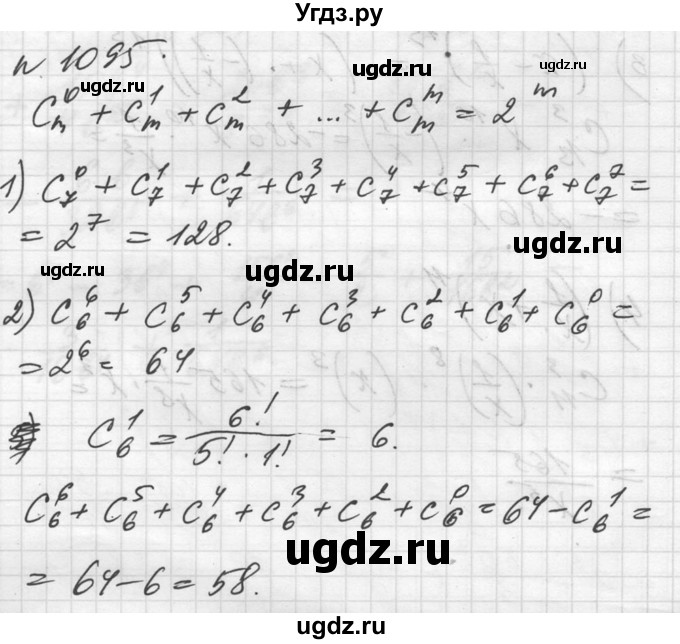 Угдз.ру
n. 1095.
C_m^0 + C_m^1 + C_m^2 + ... + C_m^m = 2^m
1) C_7^0 + C_7^1 + C_7^2 + C_7^3 + C_7^4 + C_7^5 + C_7^6 + C_7^7 =
= 2^7 = 128.
2) C_6^6 + C_6^5 + C_6^4 + C_6^3 + C_6^2 + C_6^1 + C_6^0 =
= 2^6 = 64
C_6^1 = 6! / (5! · 1!) = 6.
C_6^6 + C_6^5 + C_6^4 + C_6^3 + C_6^2 + C_6^0 = 64 - C_6^1 =
= 64 - 6 = 58.
ugdz.ru
ugdz.ru
ugdz.ru
ugdz.ru
ugdz.ru
ugdz.ru
ugdz.ru
ugdz.ru